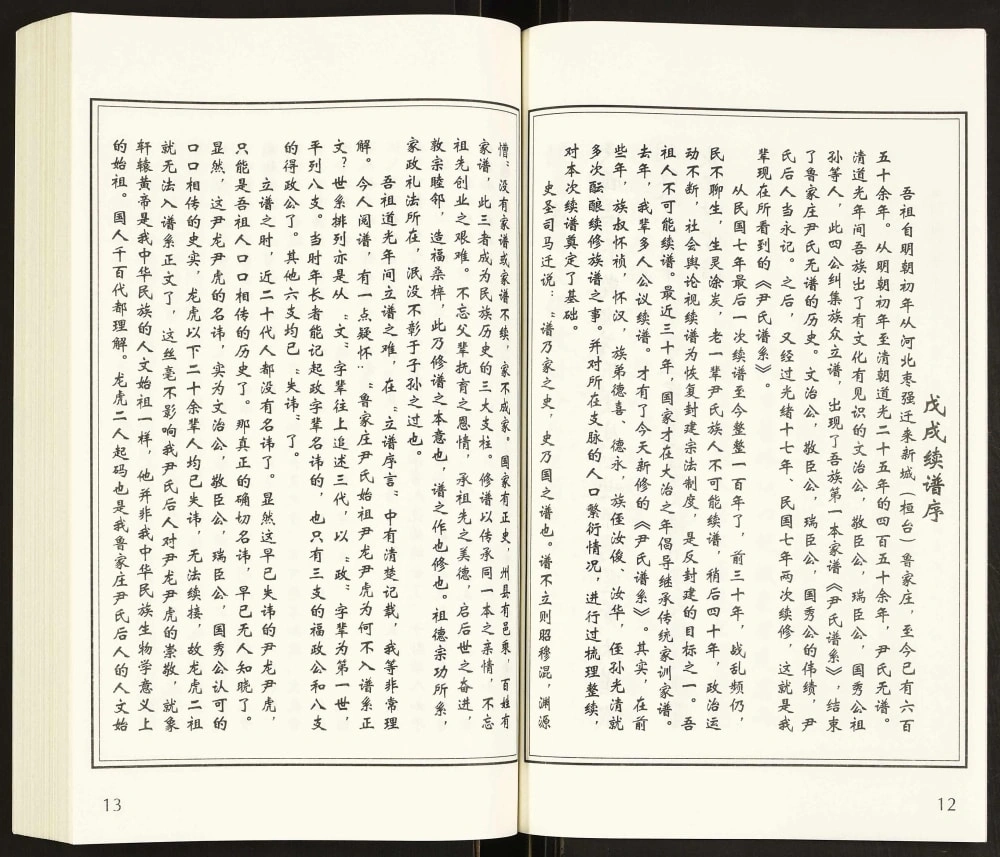 戊戌续谱序
吾祖自明朝初年从河北枣强迁来新城（桓台）鲁家庄，至今已有六百
五十余年。从明朝初年至清朝道光二十五年的四百五十余年，尹氏无谱。
清道光年间吾族出了有文化有见识的文治公，敬臣公，瑞臣公，国秀公祖
孙等人，此四公纠集族众立谱，出现了吾族第一本家谱《尹氏谱系》，结束
了鲁家庄尹氏无谱的历史。文治公，敬臣公，瑞臣公，国秀公的伟绩，尹
氏后人当永记。之后，又经过光绪十七年、民国七年两次续修，这就是我
辈现在所看到的《尹氏谱系》。
从民国七年最后一次续谱至今整整一百年了，前三十年，战乱频仍，
民不聊生，生灵涂炭，老一辈尹氏族人不可能续谱，稍后四十年，政治运
动不断，社会舆论视续谱为恢复封建宗法制度，是反封建的目标之一。吾
祖人不可能续谱。最近三十年，国家才在大治之年倡导继承传统家训家谱。
去年，我辈多人公议续谱。才有了今天新修的《尹氏谱系》。其实，在前
些年，族叔怀祯，怀汉，族弟德喜、德永，族侄汝俊、汝华，侄孙光清就
多次酝酿续修族谱之事。并对所在支脉的人口繁衍情况，进行过梳理整续，
对本次续谱奠定了基础。
史圣司马迁说：“谱乃家之史，史乃国之谱也。谱不立则昭穆混，渊源
12
懵；没有家谱或家谱不续，家不成家。国家有正史，州县有邑乘，百姓有
家谱，此三者成为民族历史的三大支柱。修谱以传承同一本之亲情，不忘
祖先创业之艰难。不忘父辈抚育之恩情，承祖先之美德，启后世之奋进，
敦宗睦邻，造福桑梓，此乃修谱之本意也，谱之作也修也。祖德宗功所系，
家政礼法所在，泯没不彰于子孙之过也。
吾祖道光年间立谱之难，在“立谱序言”中有清楚记载，我等非常理
解。今人阅谱，有一点疑怀：“鲁家庄尹氏始祖尹龙尹虎为何不入谱系正
文？世系排列亦是从“文”字辈往上追述三代，以“政”字辈为第一世，
平列八支。当时年长者能记起政字辈名讳的，也只有三支的福政公和八支
的得政公了。其他六支均已“失讳”了。
立谱之时，近二十代人都没有名讳了。显然这早已失讳的尹龙尹虎，
只能是吾祖人口口相传的历史了。那真正的确切名讳，早已无人知晓了。
显然，这尹龙尹虎的名讳，实为文治公，敬臣公，瑞臣公，国秀公认可的
口口相传的史实，龙虎以下二十余辈人均已失讳，无法续接，故龙虎二祖
就无法入谱系正文了，这丝毫不影响我尹氏后人对尹龙尹虎的崇敬，就象
轩辕黄帝是我中华民族的人文始祖一样，他并非我中华民族生物学意义上
的始祖。国人千百代都理解。龙虎二人起码也是我鲁家庄尹氏后人的人文始
13